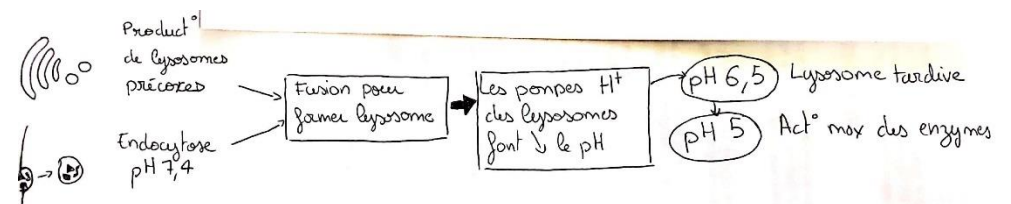 Product°
de lysosomes
précoces
Endocytose
pH 7,4
Fusion pour
former lysosome
Les pompes H+
des lysosomes
font ↘ le pH
pH 6,5
Lysosome tardive
pH 5
Act° max des enzymes